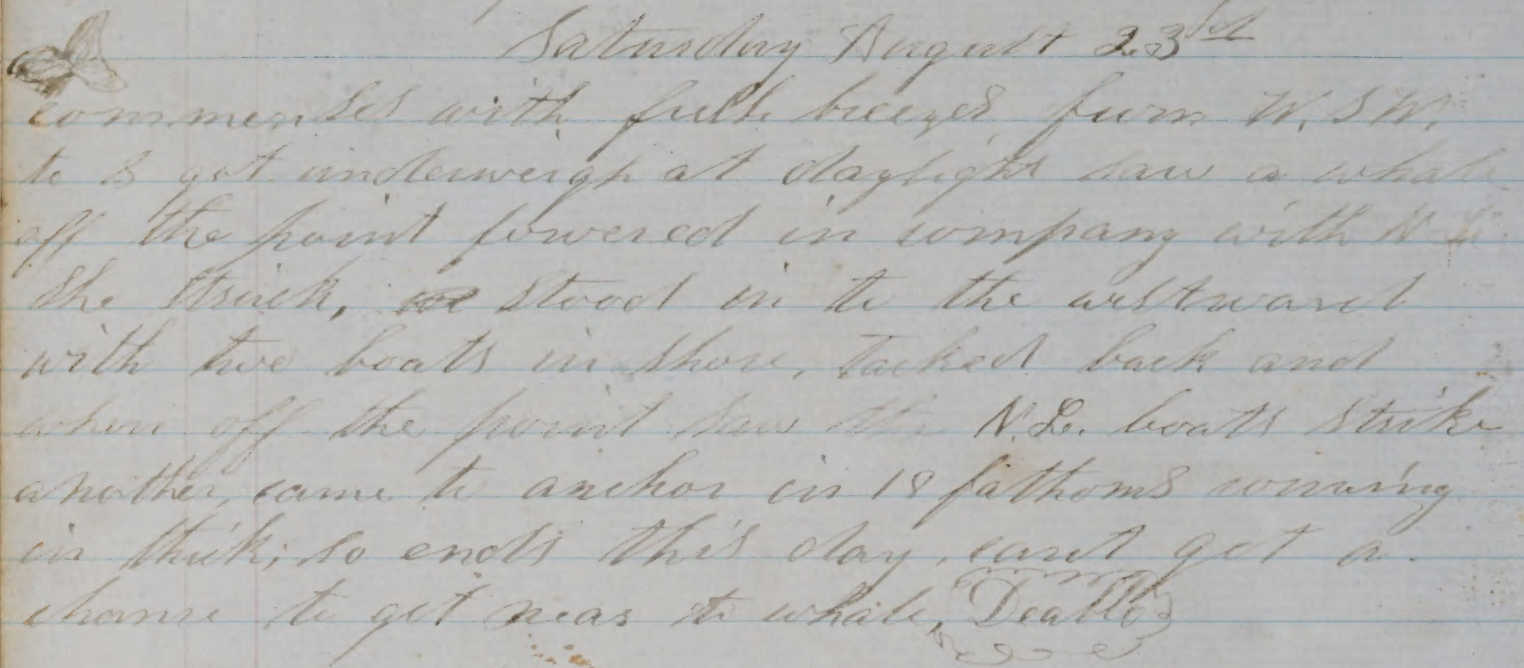 Saturday August 23rd
commenses with fresh breezes from W.S.W.
to S got underweigh at daylight saw a whale
off the point lowered in company with N.L.
she struck, stood in to the westward
with two boats in shore, Tacked back and
when off the point saw the N.L. boats strike
another, came to anchor in 18 fathoms coming
in thick; so ends this day, cant get a
chance to get near to whale, Deablo